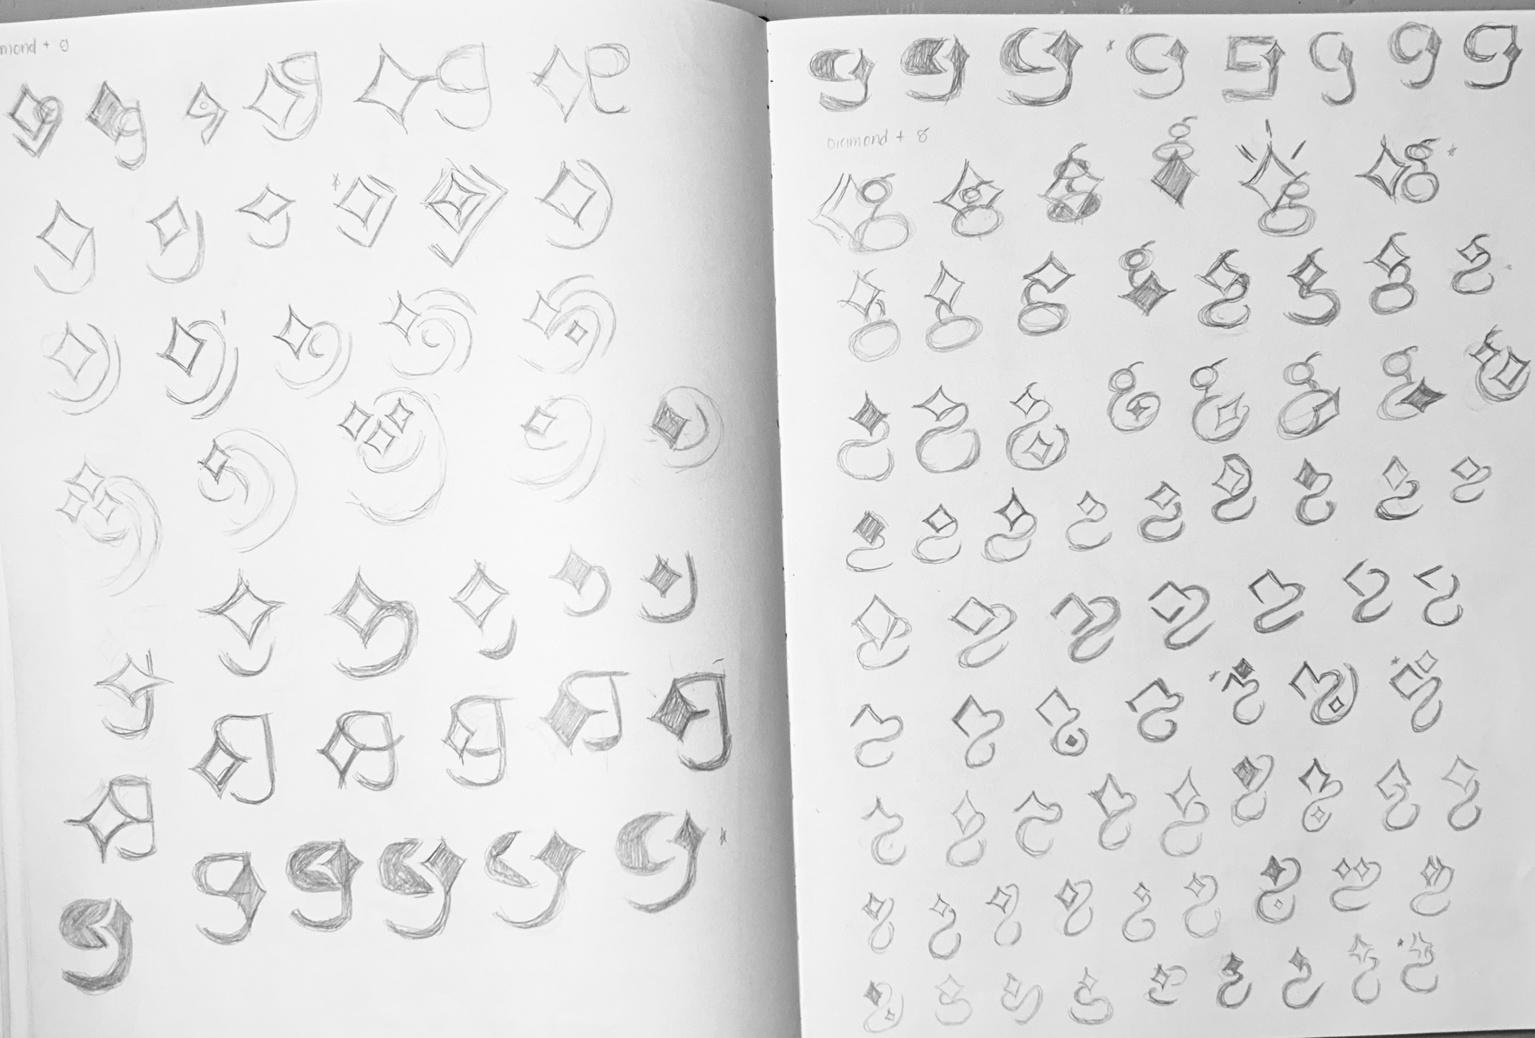 mond + g
Diamond + g